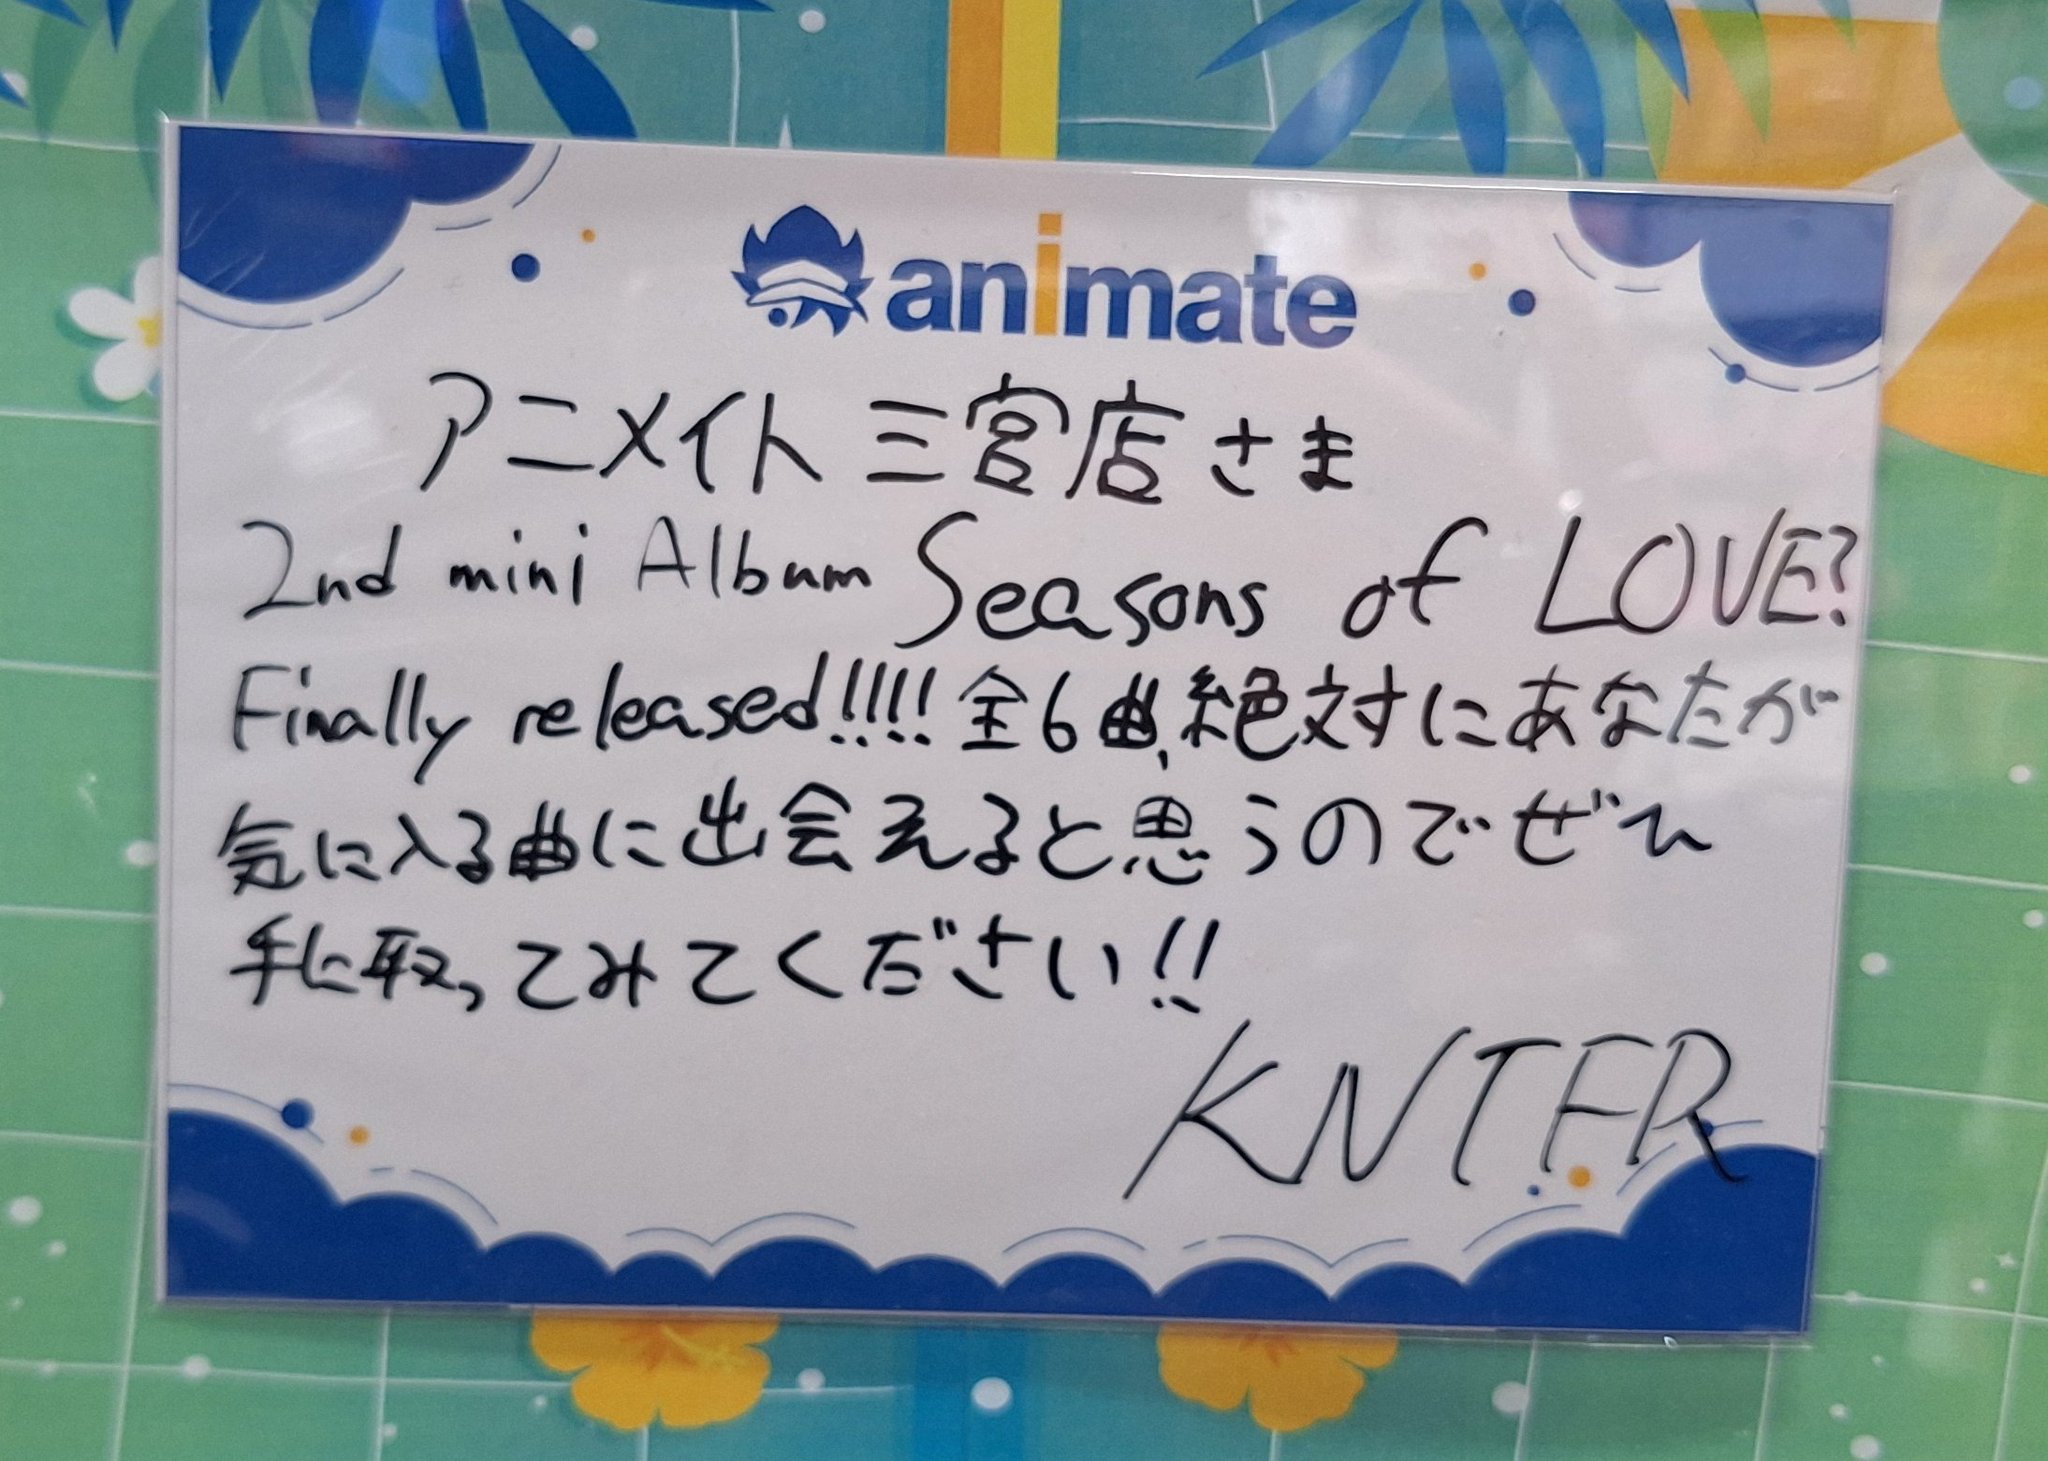 animate
アニメイト三宮店さま
2nd mini Album Seasons of LOVE?
Finally released!!!! 全6曲、絶対にあなたが
気に入る曲に出会えると思うのでぜひ
手に取ってみてください!!
KNTFR